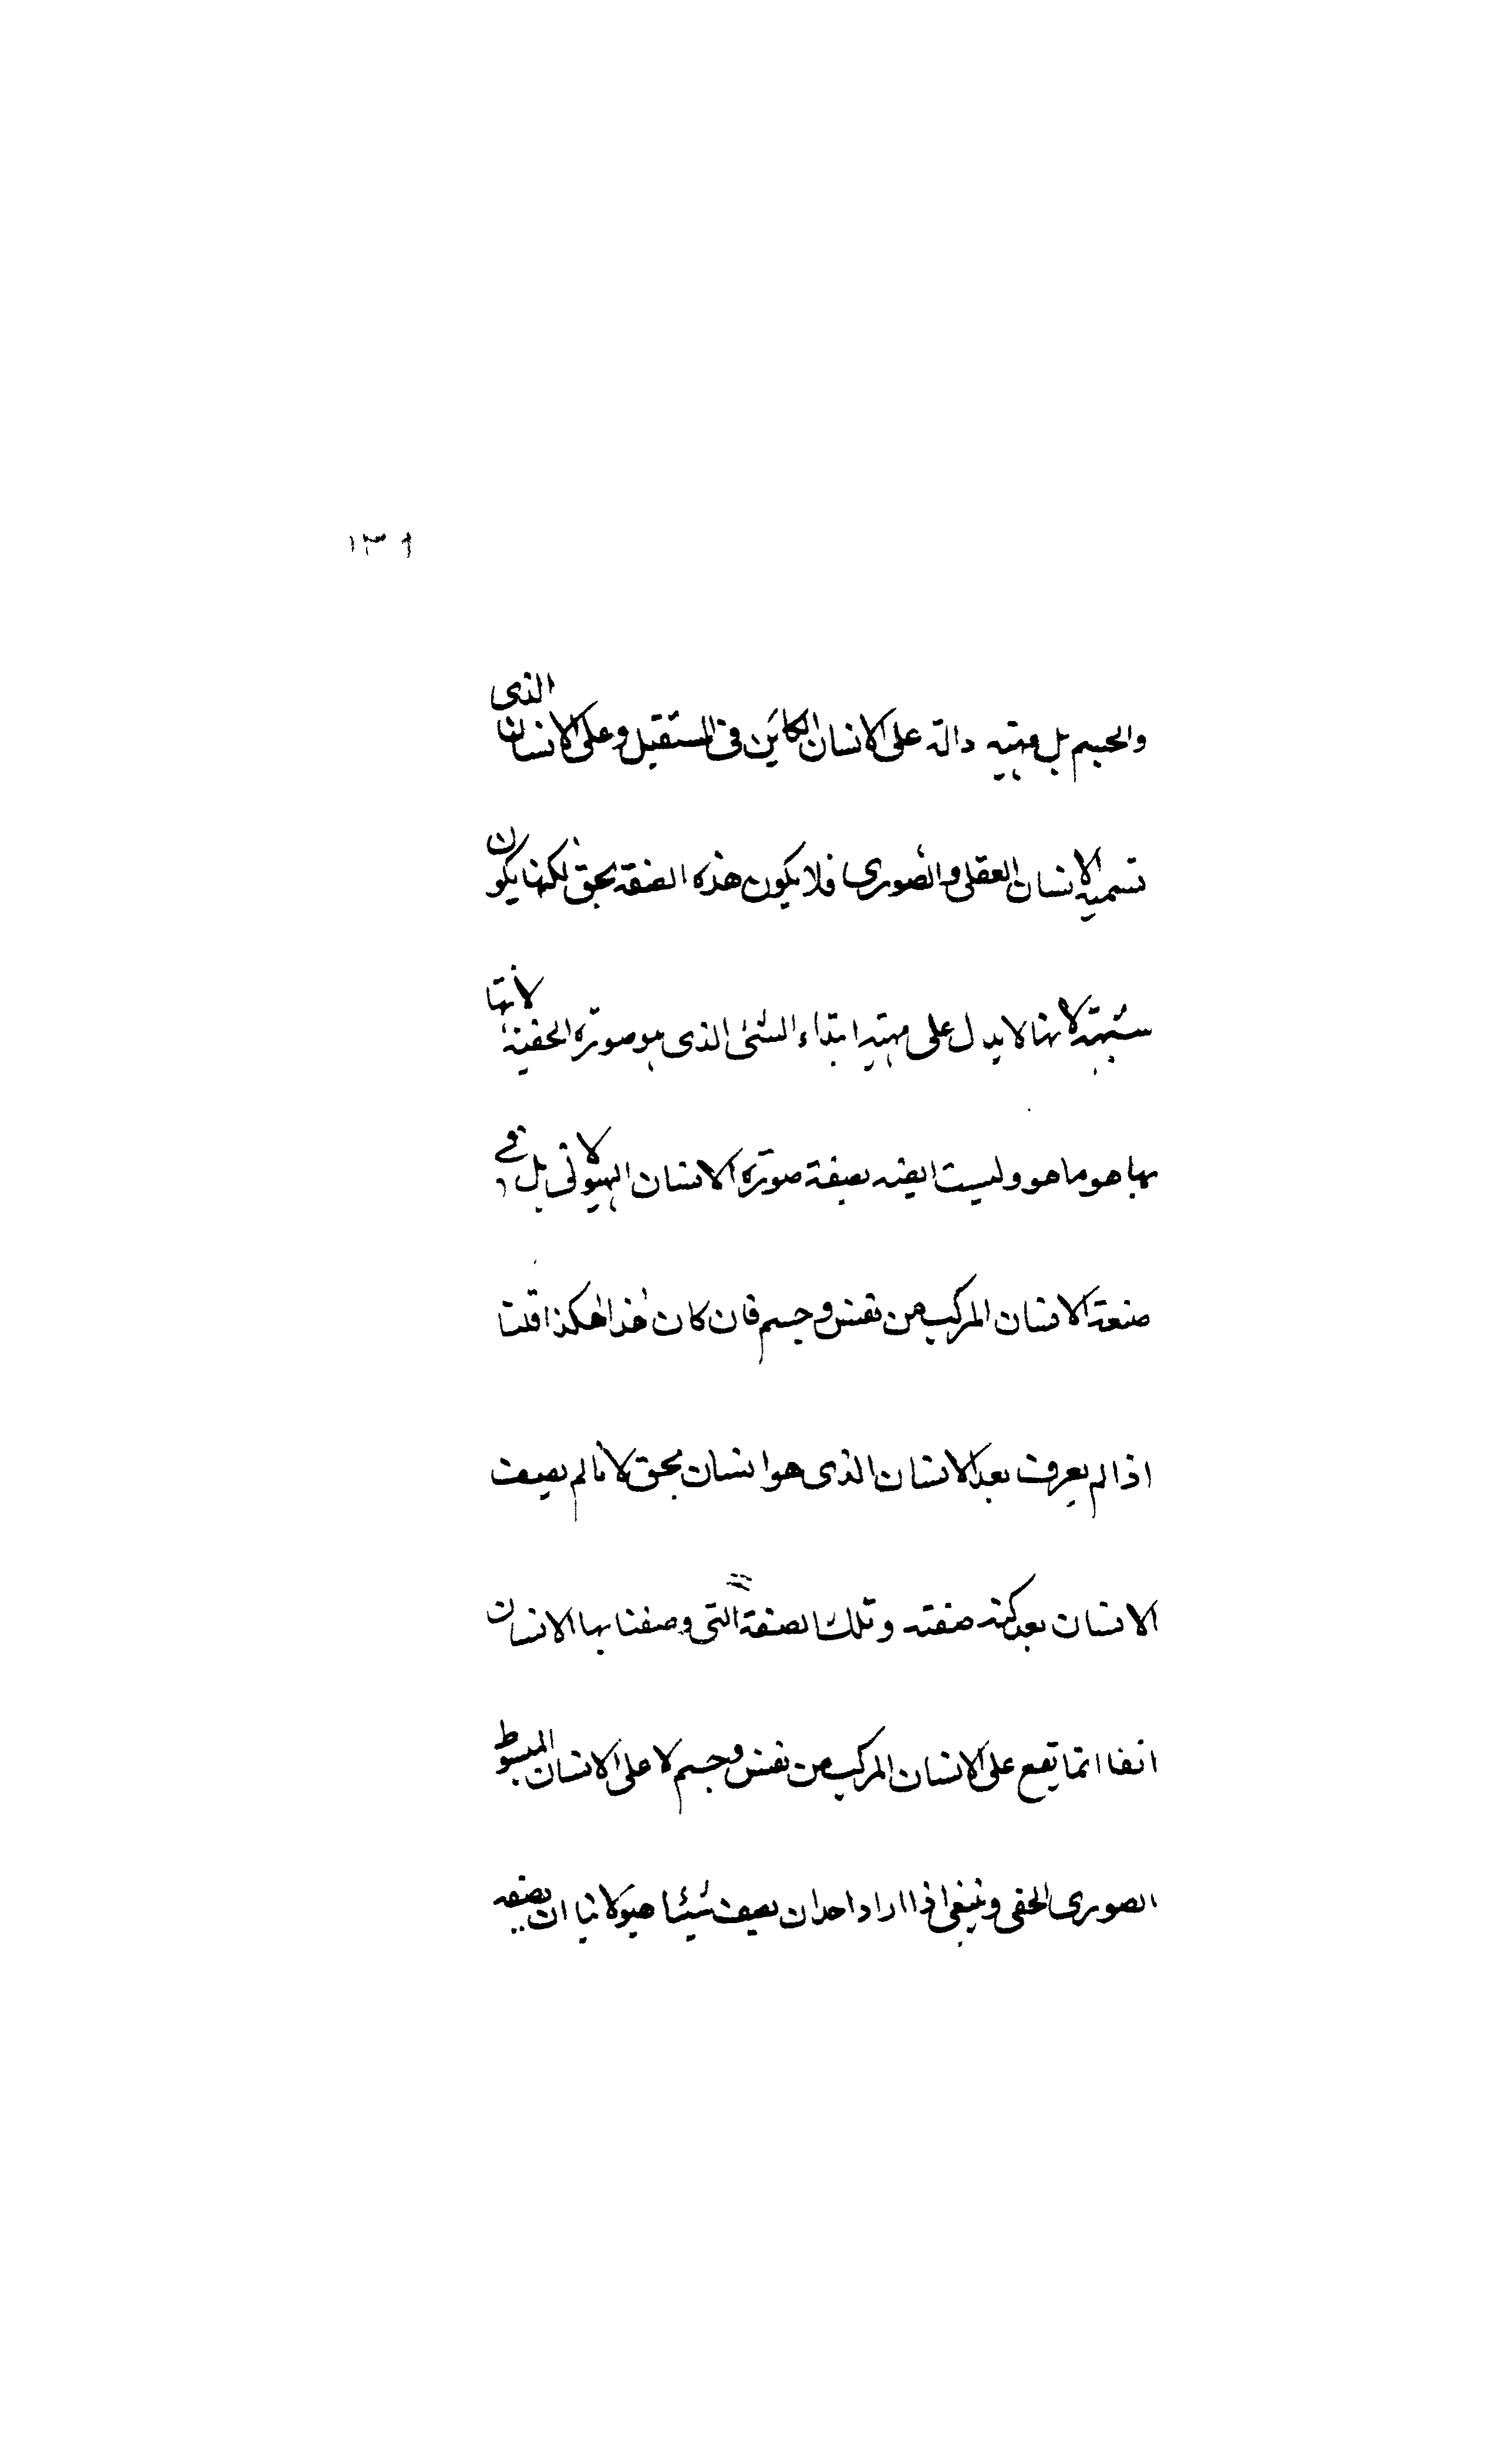 ١٣٦
والجسم بل مهية دالة على الانسان الكائن فى المستقبل وعلى الانسان الذى
تسميه الانسان العقلى والصورى فلا يكون هذه الصفة بحق لكنها يكون
شبهة لانها لا يدل على مهية ابتداء الشئ الذى هو صورته الحقية لأنها
بها هو ما هو وليست ايضه بصفة صورة الانسان الهيولانى بل هى
صفة الانسان المركب من نفس وجسم فان كان هذا هكذا قلنا
اذا لم يعرف بعد الانسان الذى هو انسان بحق لأنا لم يصف
الانسان بعد كنه صفته وتلك الصفة التى وصفنا بها الانسان
انفا انما يقع على الانسان المركب من نفس وجسم لا على الانسان المبسوط
الصورى الحقى وينبغى اذا اراد احد ان يصف شيئا هيولانيا ان يصفه